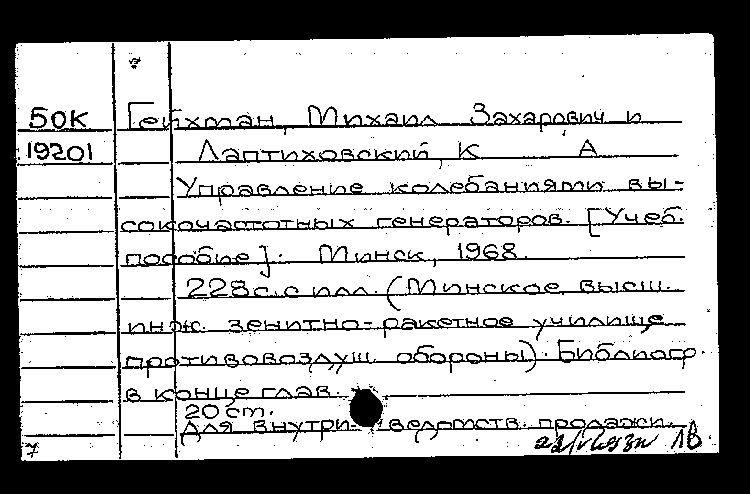 50К Гейхман, Михаил Захарович и
19201 Лаптиховский, К А
Управление колебаниями вы-
сокочастотных генераторов. [Учеб.
пособие]. Минск, 1968.
228с.с илл. (Минское высш.
инж. зенитно-ракетное училище
противовоздуш. обороны). Библиогр.
в конце глав.
20 ст.
Для внутри-ведомств. продажи.
7 ЛВ